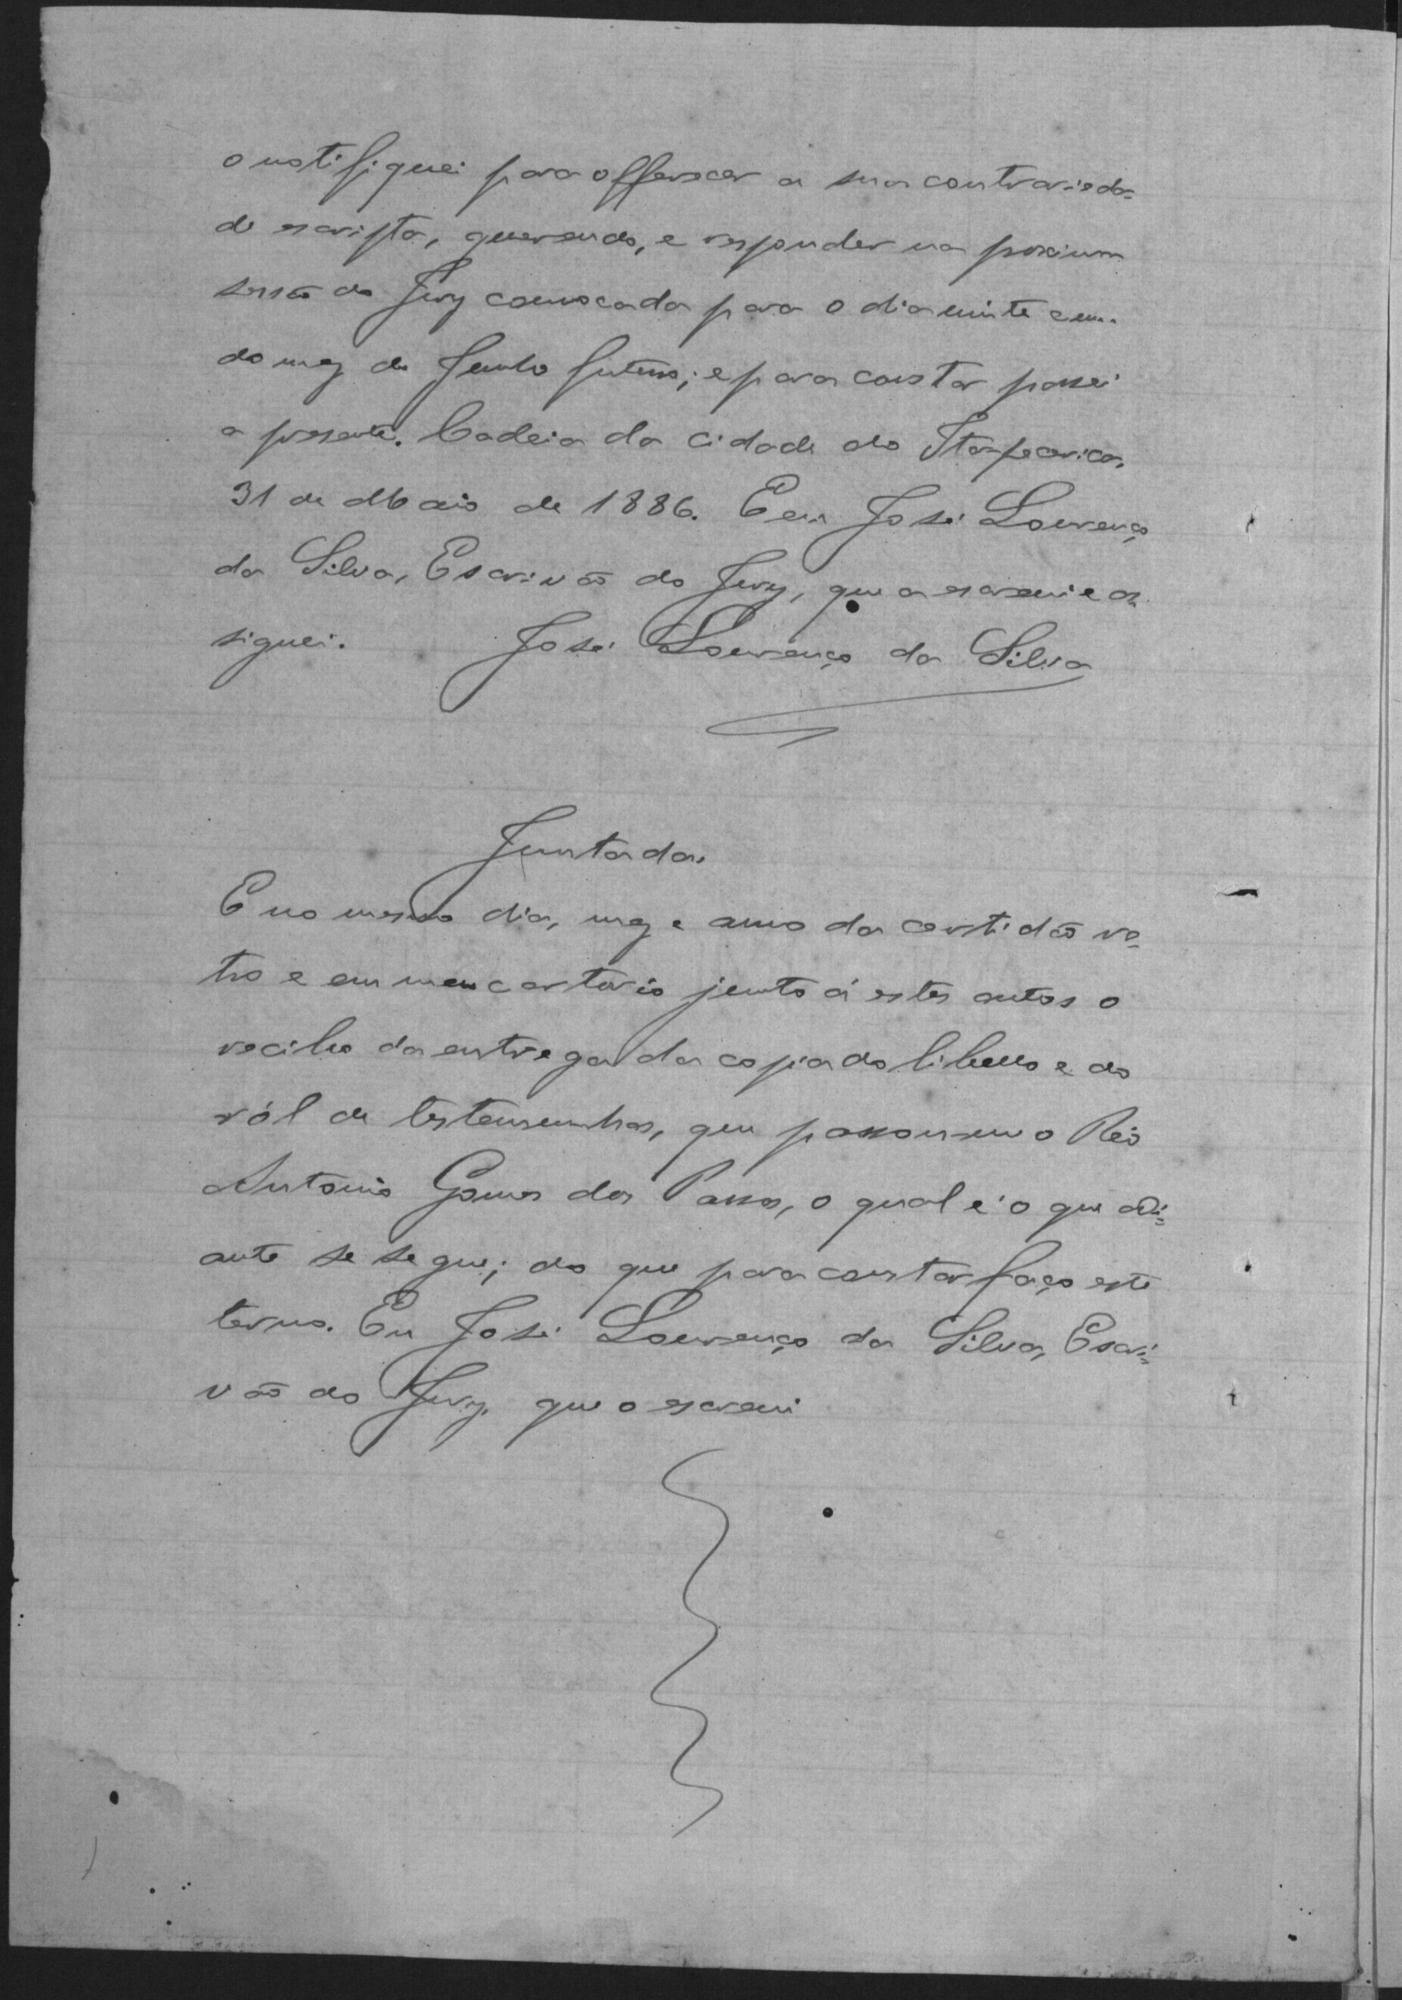 o notifiquei para offerecer a sua contrarieda-
de escripta, querendo, e responder na proxima
sessão do Jury convocada para o dia vinte e um
do mez de Junho futuro; e para constar passei
a presente. Cadeia da cidade do Itapecerica,
31 de Maio de 1886. E eu José Lourenço
da Silva, Escrivão do Jury, que a escrevi e as-
signei. José Lourenço da Silva
Juntada.
E no mesmo dia, mez e anno da certidão re-
tro e em meu cartorio junto á estes autos o
recibo da entrega da copia do libello e do
ról de testemunhas, que passou-me o Réo
Antonio Gomes dos Passos, o qual é o que adi-
ante se segue; do que para constar faço este
termo. Eu José Lourenço da Silva, Escri-
vão do Jury, que o escrevi